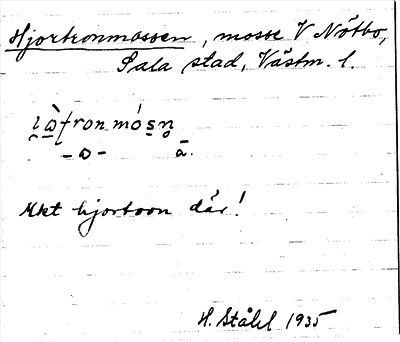 Hjortronmossen, mosse V Nötbo,
Sala stad, Västm. l.
-o- ā.
Mkt hjortron där!
H. Ståhl 1935